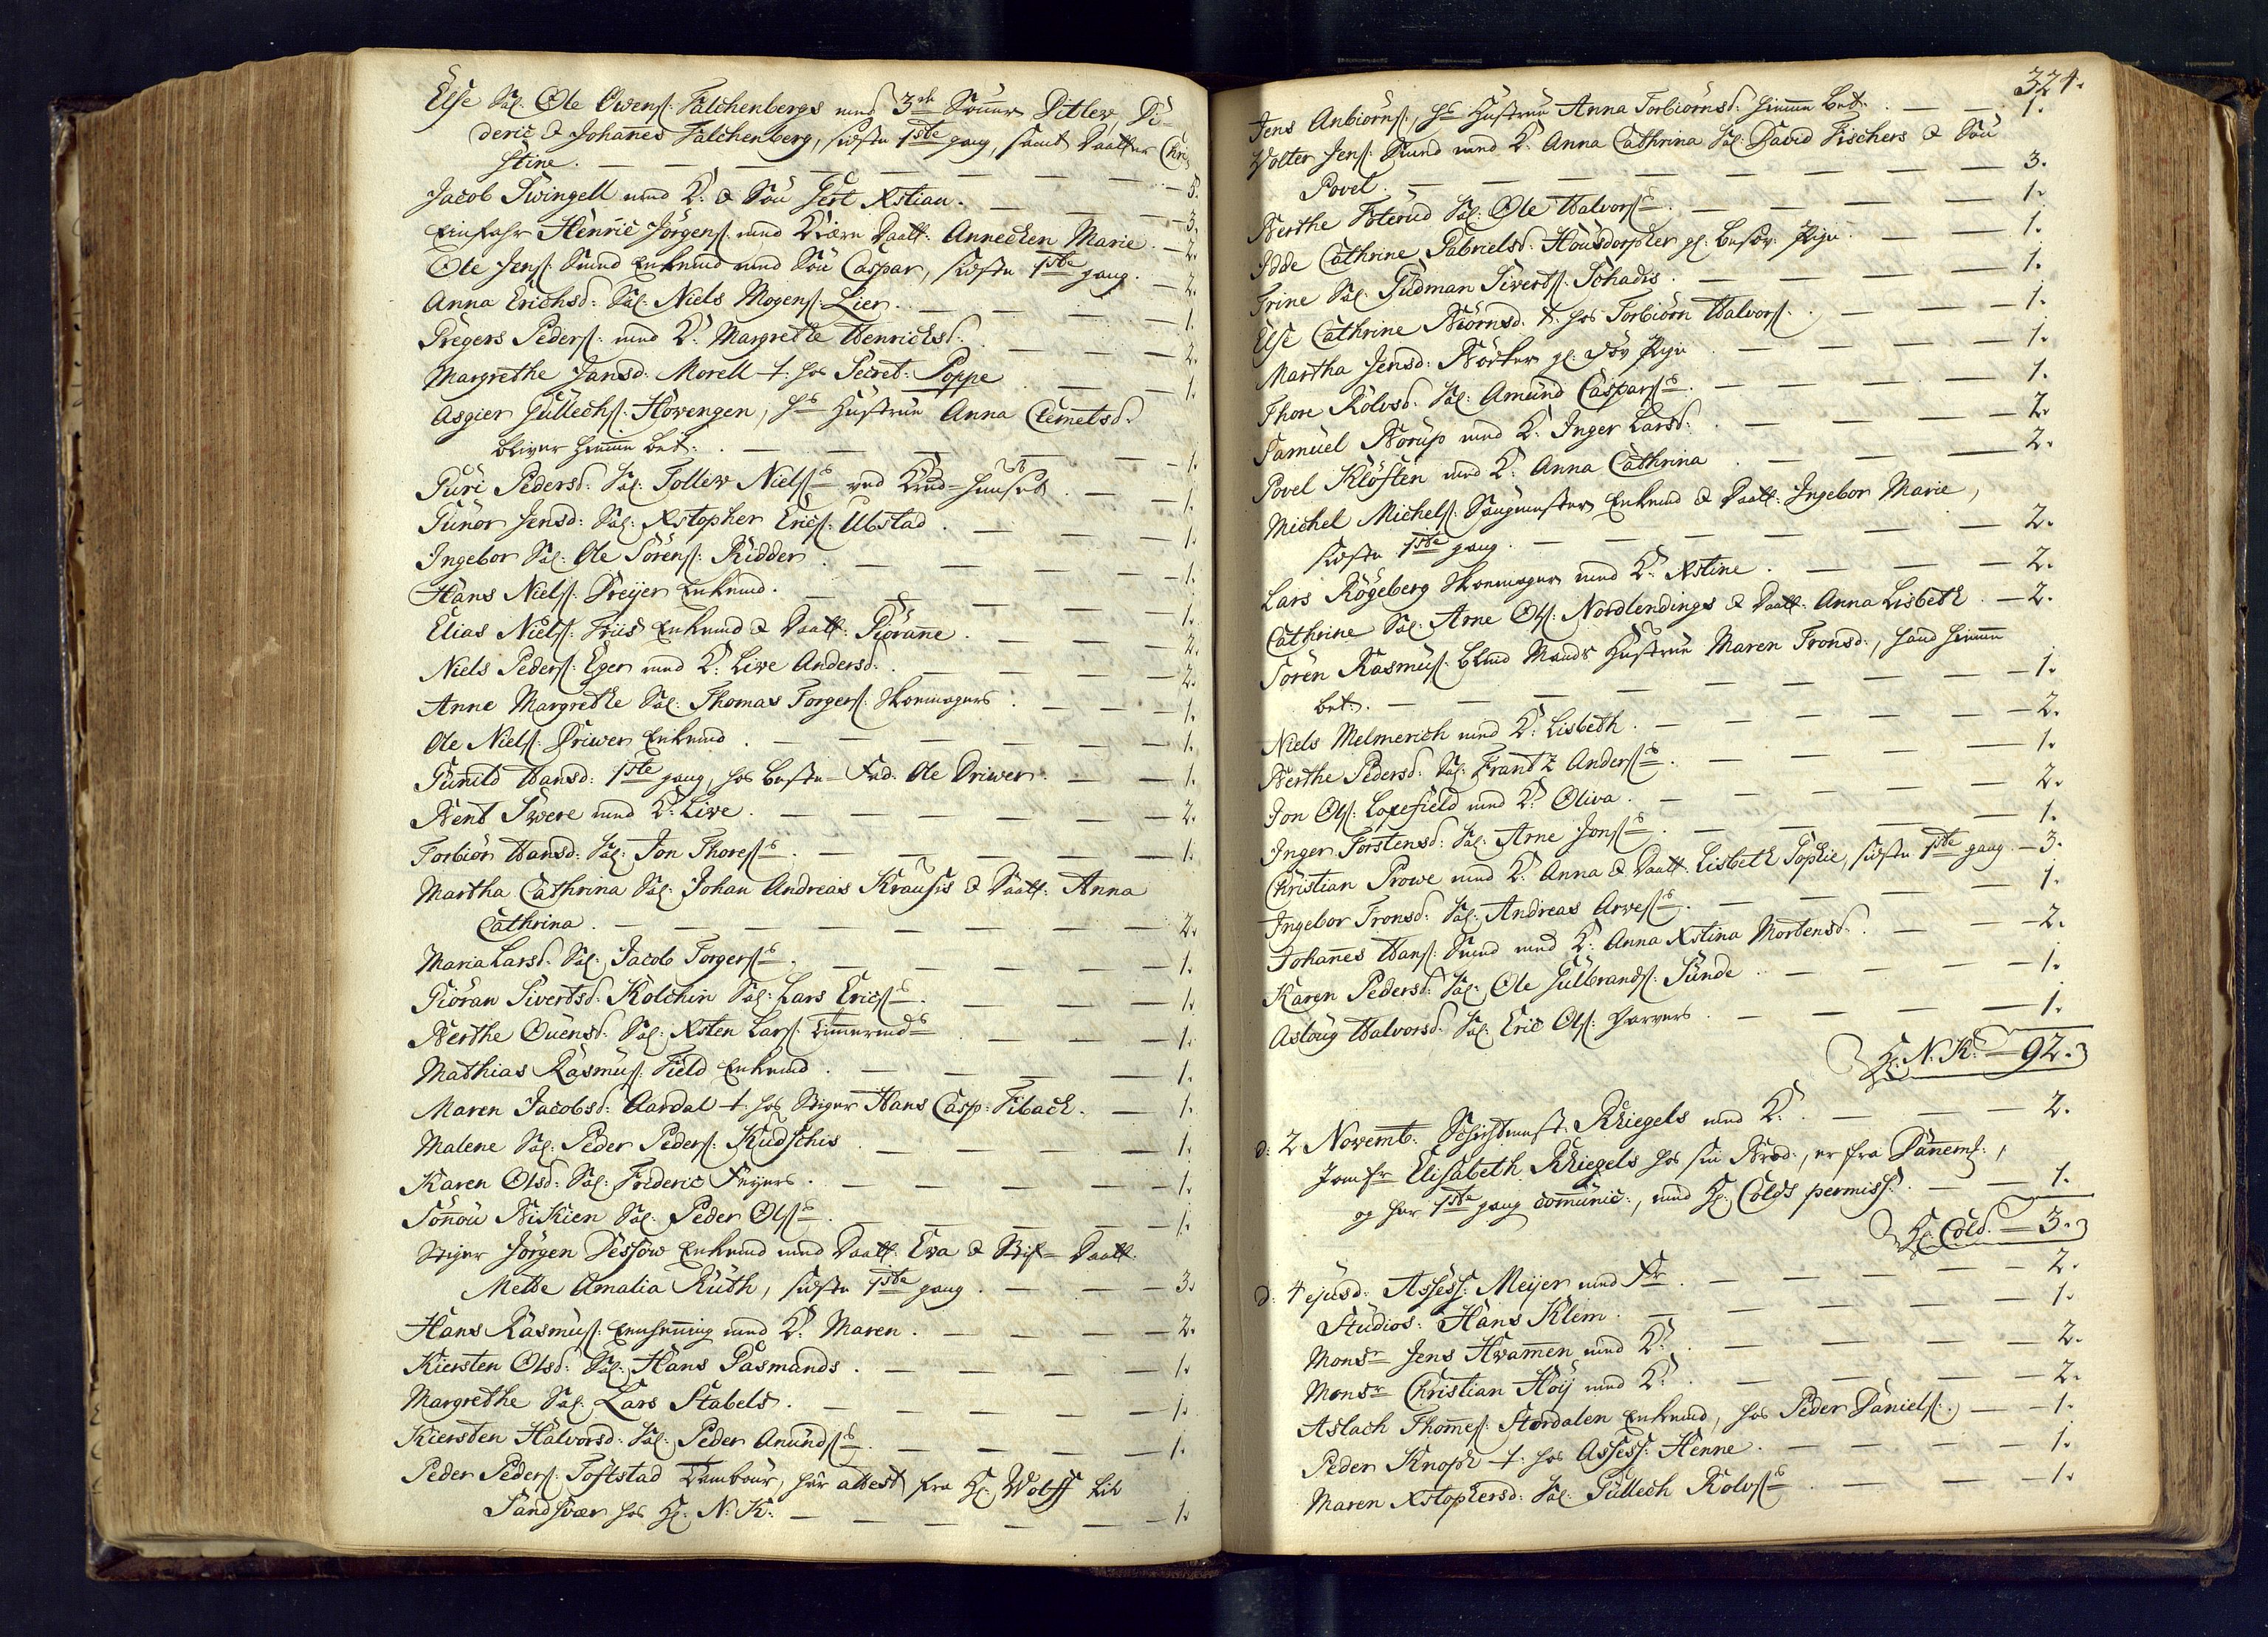 Else Sal: Ole Owens: Falchenbergs med 3de Sønner Ditlev, Di-
deric & Johannes Falchenberg, sidste 1ste gang, samt Daatter Chri-
stine. — 5.
Jacob Swingell med K: & Søn Gert Xstian. — 3.
Einfahr Henric Jörgens: med Kiære Daatt: Annecken Marie. — 2.
Ole Jens: Smed Enkemd med Søn Caspar, sidste 1ste gang. — 2.
Anna Erichsd: Sal: Niels Mogens: Lier. — 1.
Gregers Peders: med K: Margrethe Henrichsd: — 2.
Margrethe Jansd: Morell t: hos Secret: Poppe — 1.
Asgier Gullechs: Hovengen, hs Hustrue Anna Clemetsd:
bliver hiemme bet: — 1.
Guri Pedersd: Sal: Tollew Niels:s ved Krud-huuset. — 1.
Gunor Jensd: Sal: Xstopher Erics: Ubstad. — 1.
Ingebor Sal: Ole Sörens: Ridder. — 1.
Hans Niels: Dreyer Enkemd. — 1.
Elias Niels: Friis Enkemd & Daatt: Giöranne. — 2.
Niels Peders: Eger med K: Live Andersd: — 2.
Anne Margrethe Sal: Thomas Torgers: Skoemagers. — 1.
Ole Niels: Driwer Enkemd. — 1.
Gunild Hansd: 1ste gang, hos beste-Fad: Ole Driwer. — 1.
Bent Swere med K: Live. — 2.
Torbiör Hansd: Sal: Jon Thores:s. — 1.
Martha Cathrina Sal: Johan Andreas Krausis & Daatt: Anna
Cathrina. — 2.
Maria Larsd: Sal: Jacob Torgers:s. — 1.
Giöran Sivertsd: Kolchin Sal: Lars Erics:s. — 1.
Berthe Ouensd: Sal: Xsten Lars: Tømmermds — 1.
Mathias Rasmus: Field Enkemd. — 1.
Maren Jacobsd: Aardal t: hos Stiger Hans Casp: Fibach. — 1.
Malene Sal: Peder Peders: Kudschis — 1.
Karen Olsd: Sal: Frideric Feyers. — 1.
Sönnou Nikien Sal: Peder Ols:s. — 1.
Stiger Jörgen Dessow Enkemd med Daatt: Eva & Stif-Daatt:
Mette Amalia Ruth, sidste 1ste gang. — 3.
Hans Rasmus: med K: Maren. — 2.
Kiersten Olsd: Sal: Hans Gasmands. — 1.
Margrethe Sal: Lars Stabels. — 1.
Kiersten Halvorsd: Sal: Peder Anunds:s. — 1.
Peder Peders: Toftstad Tambour, har attest fra Hr: Wolff til
Sandsvær hos Hr: N: K: — 1.
324.
Jens Anbiörns:, hs Hustrue Anna Torbiörnsd: hiemme bet: — 1.
Wolter Jens: Smed med K: Anna Cathrina Sal: David Fischers & Søn
Povel. — 3.
Berthe Foterud Sal: Ole Halvors:s. — 1.
Edde Cathrine Gabrielsd: Housdorpher gl: besov: Pige. — 1.
Trine Sal: Gudman Siverts: Schadis. — 1.
Else Cathrine Biörnsd: t: hos Torbiörn Halvors:. — 1.
Martha Jensd: Börker gl: döv Pige — 1.
Thore Rolvsd: Sal: Amund Caspars:s. — 1.
Samuel Borup med K: Inger Larsd: — 2.
Povel Klöften med K: Anna Cathrina — 2.
Michel Michels: Saugmester Enkemd & Daatt: Ingebor Marie,
sidste 1ste gang. — 2.
Lars Rögeberg Skoemager med K: Xstine. — 2.
Cathrine Sal: Arne Ols: Nordlendings & Daatt: Anna Lisbeth. — 2.
Sören Rasmus: blind Mands Hustrue Maren Tronsd:, hand hiemme
bet:. — 1.
Niels Melmerich med K: Lisbeth. — 2.
Berthe Pedersd: Sal: Frantz Anders:s. — 1.
Jon Ols: Loxefield med K: Oliva. — 2.
Inger Torstensd: Sal: Arne Jons:s. — 1.
Christian Prowe med K: Anna & Daatt: Lisbeth Sophie, sidste 1ste gang. — 3.
Ingebor Tronsd: Sal: Andreas Arves:s. — 1.
Johannes Hans: Smed med K: Anna Xstina Mortensd:. — 2.
Karen Pedersd: Sal: Ole Gulbrands: Sunde — 1.
Aslaug Halvorsd: Sal: Eric Ols: Garvers. — 1.
Hr: N: K: — 92.
d: 2 Novemb: Schichtmest: Khiegels med K: — 2.
Jomfr Elisabeth Khiegels hos sin Brod:, er fra Dannem:,
og har 1ste gang communic:, med Hr: Colds permiss: — 1.
Hr: Cold. — 3.
d: 4 ejusd: Assess: Meijer med Fr. — 2.
Studios: Hans Klem. — 1.
Monsr Jens Hvamen med K: — 2.
Monsr Christian Höij med K: — 2.
Aslach Thommes: Stordalen Enkemd, hos Peder Daniels:. — 1.
Peder Knoph t: hos Assess: Henne. — 1.
Maren Xstophersd: Sal: Gullech Rolvs:s — 1.